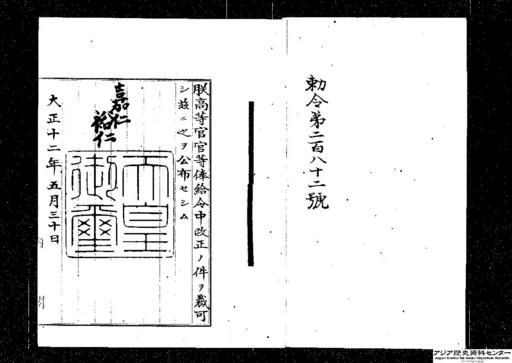 勅令第二百八十二號
朕高等官官等俸給令中改正ノ件ヲ裁可
シ玆ニ之ヲ公布セシム
嘉仁
裕仁
天皇
御璽
大正十二年五月三十日
内閣
アジア歴史資料センター
Japan Center for Asian Historical Records